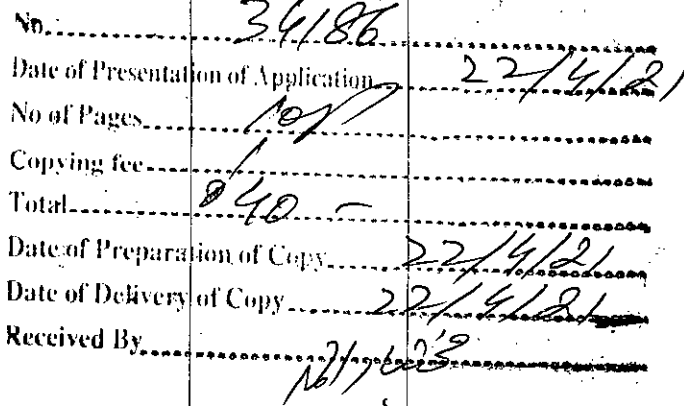 No. 34186
Date of Presentation of Application 22/4/21
No of Pages
Copying fee
Total 40 -
Date of Preparation of Copy 22/4/21
Date of Delivery of Copy 22/4/21
Received By